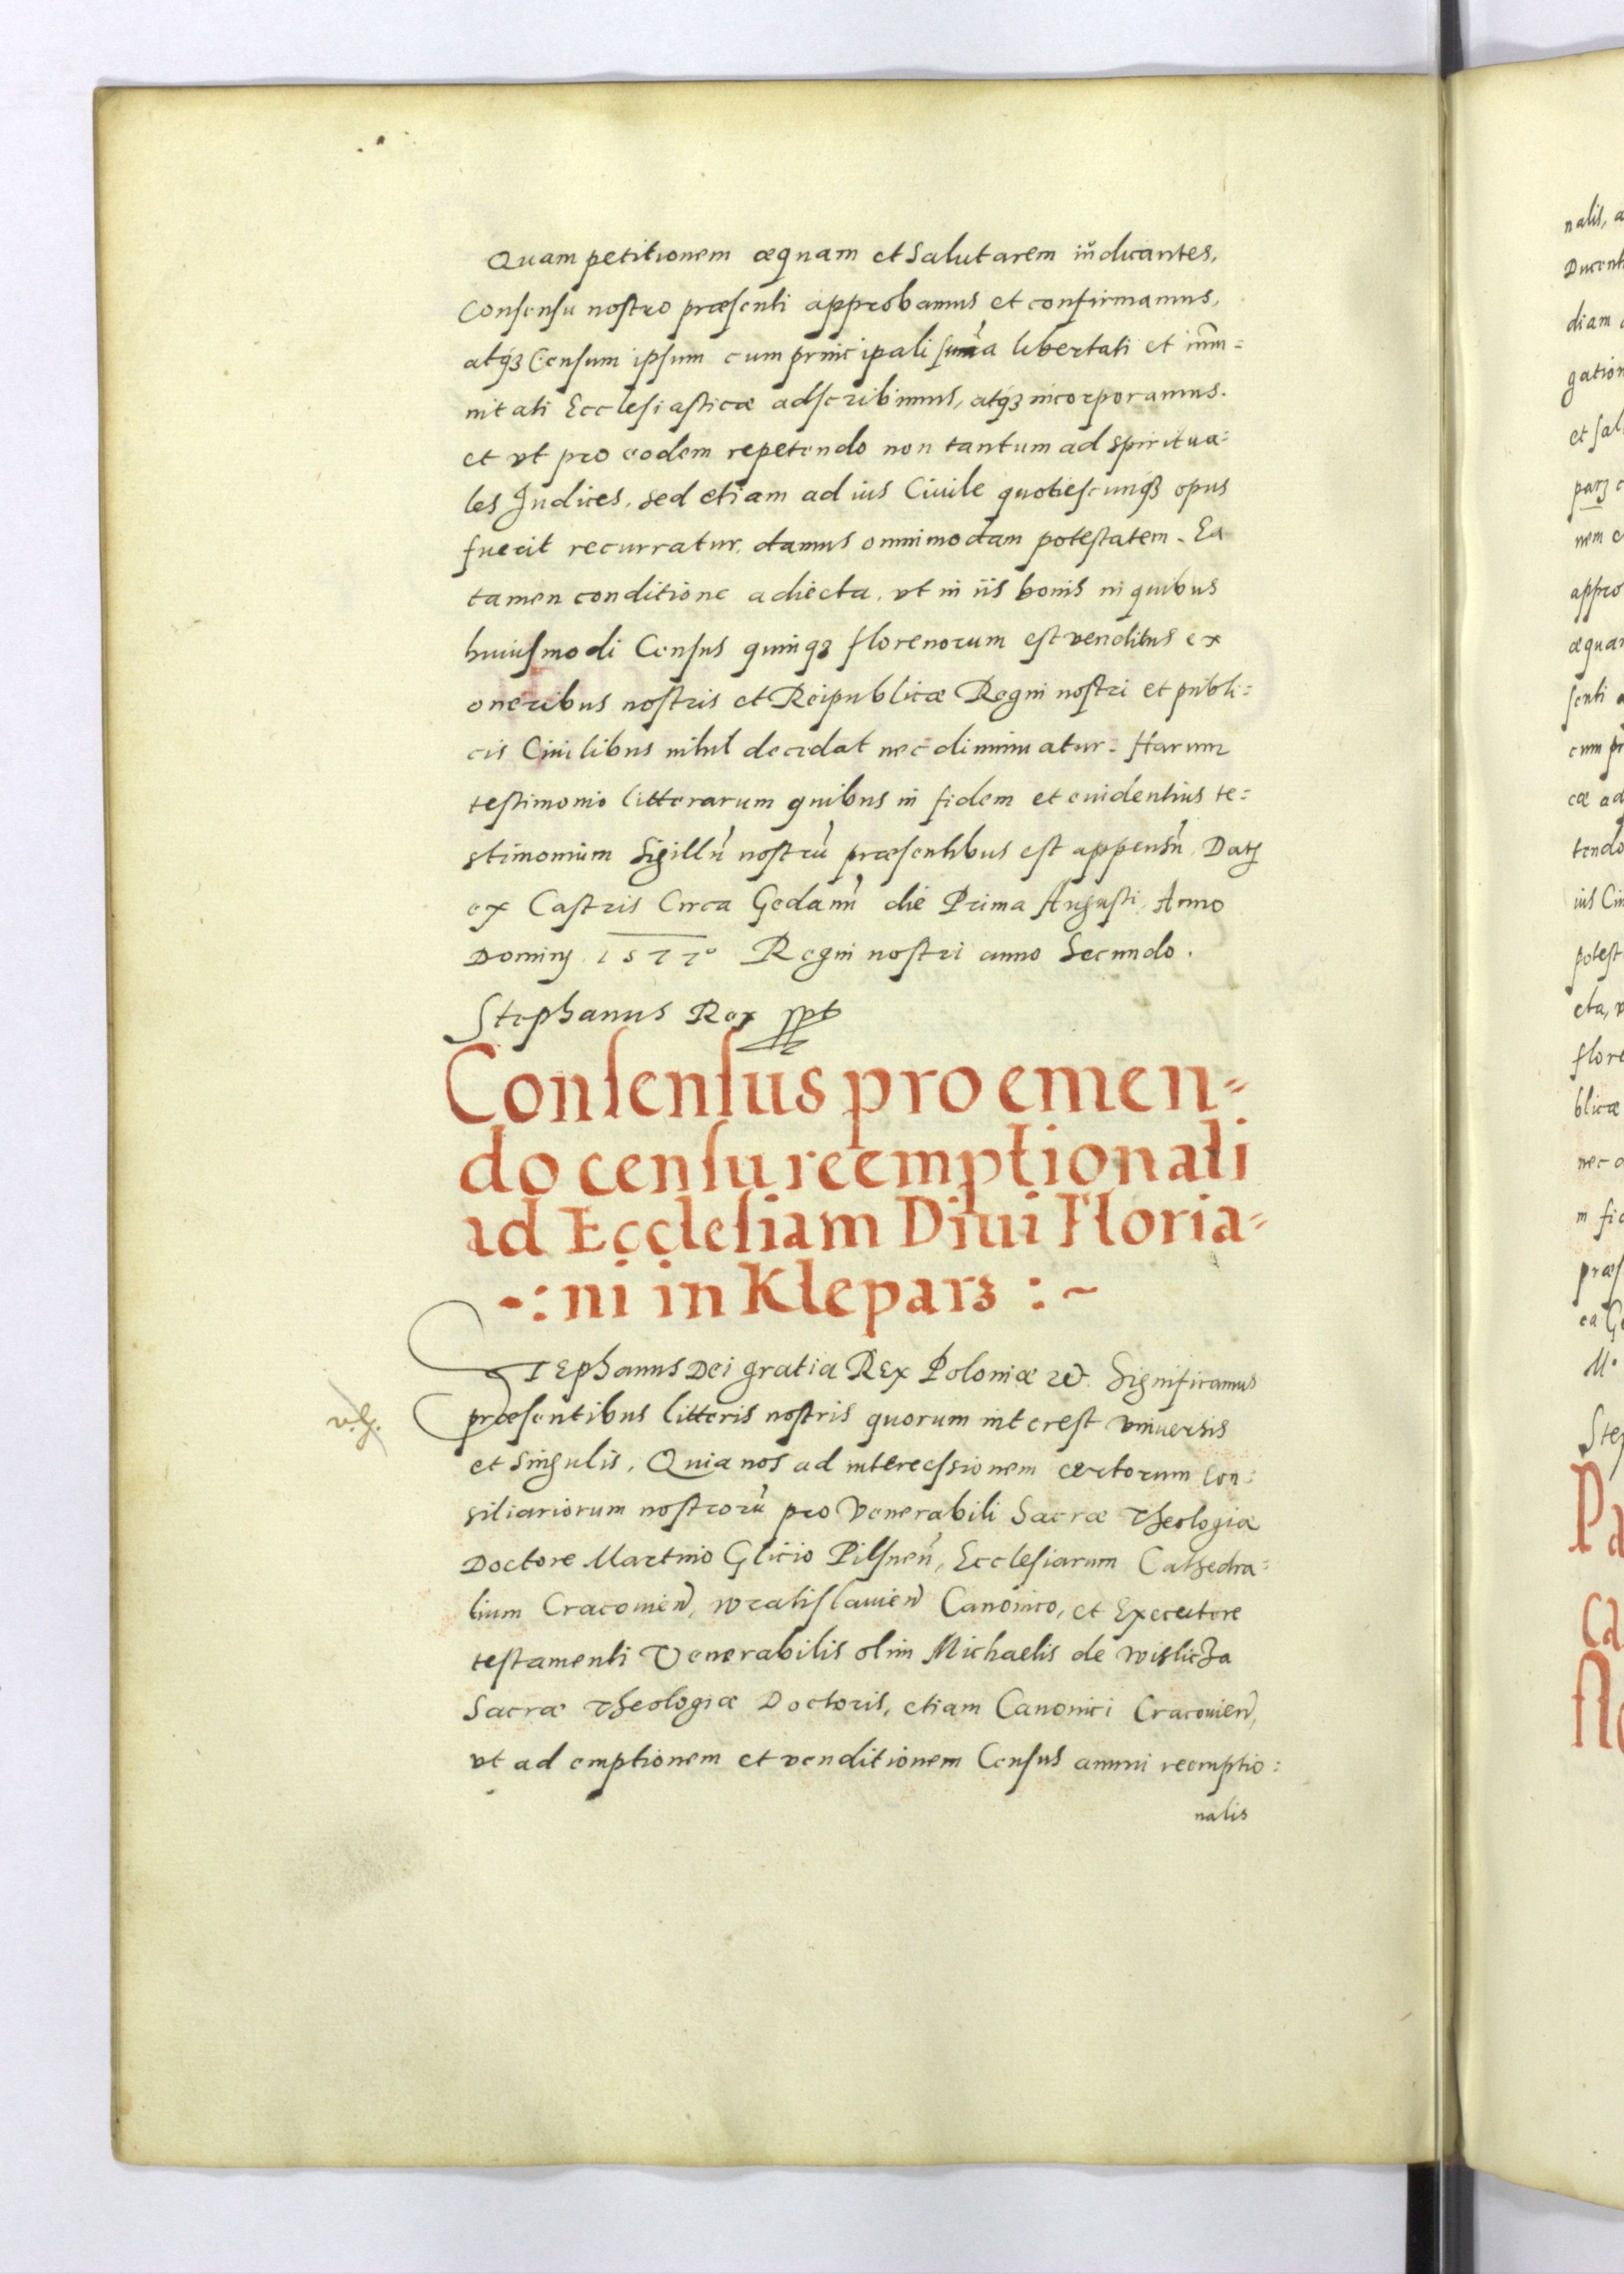 Quam petitionem æquam et Salutarem iudicantes,
Consensu nostro præsenti approbamus et confirmamus,
atq3 Censum ipsum cum principali sum̃a libertati et im̃u=
nitati Ecclesiasticæ adscribimus, atq3 incorporamus.
et vt pro eodem repetendo non tantum ad spiritua=
les Judices, sed etiam ad ius Ciuile quotiescunq3 opus
fuerit recurratur, damus omnimodam potestatem. Ea
tamen conditione adiecta, vt in iis bonis in quibus
huiusmodi Census quinq3 florenorum est venditus ex
oneribus nostris et Reipublicæ Regni nostri et publi=
cis Ciuilibus nihil decedat nec diminuatur. Harum
testimonio litterarum quibus in fidem et euidentius te=
stimonium Sigillũ nostrũ præsentibus est appensũ. Datȝ
ex Castris Circa Gedanũ die Prima Augusti, Anno
Dominj 1577° Regni nostri anno Secundo.
Stephanus Rex sspt
Consensus pro emen=
do censu reemptionali
ad Ecclesiam Diui Floria=
-: ni in Klepars : ~
Stephanus Dei gratia Rex Poloniæ etc. Significamus
præsentibus litteris nostris quorum interest vniuersis
et Singulis. Quia nos ad intercessionem certorum Con=
siliariorum nostrorũ pro Venerabili Sacræ Theologiæ
Doctore Martino Glicio Pilsneñ, Ecclesiarum Cathedra=
lium Cracouieñ, Wratislauieñ Canonico, et Executore
testamenti Venerabilis olim Michaelis de Wislicza
Sacræ Theologiæ Doctoris, etiam Canonici Cracouieñ,
vt ad emptionem et venditionem Census annui reemptio=
nalis